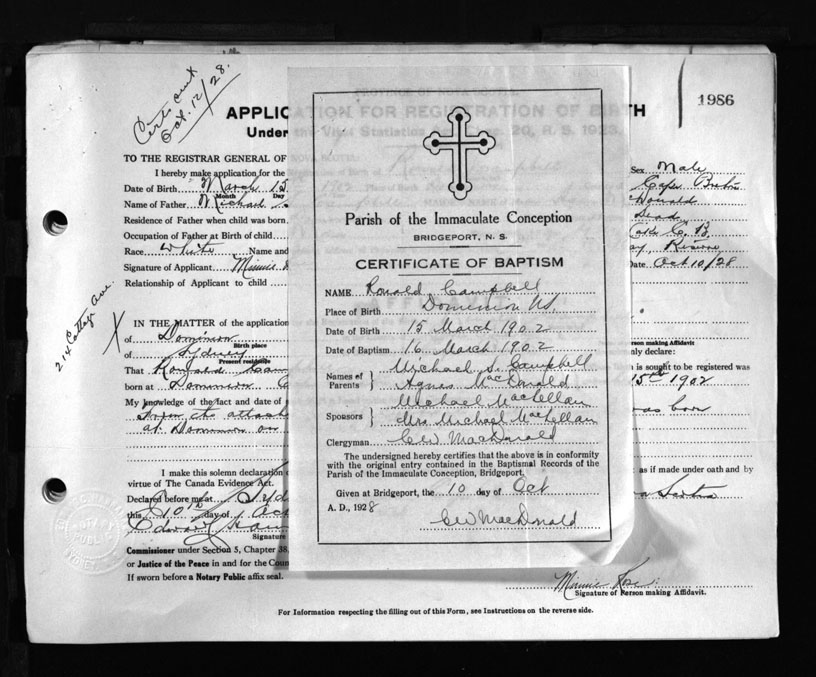 1986
Oct. 12/28.
APPLICATION FOR REGISTRATION OF BIRTH
Under the Vital Statistics
20, R. S. 1923.
TO THE REGISTRAR GENERAL OF NOVA SCOTIA:
I hereby make application for the
Sex Male
Date of Birth March 15 1902 Place of Birth
Cape Breton
Month Day
Name of Father Michael
Donald
Residence of Father when child was born
Dead
Occupation of Father at Birth of child
C. B.
Race White Name and
Signature of Applicant Minnie
Date Oct 10/28
Relationship of Applicant to child
214 Cottage Ave.
X
IN THE MATTER of the application
of Dominion
Birth place
of Sydney
Present residence
person making Affidavit
That Ronald Cam
born at Dominion
My knowledge of the fact and date of
From the attach
at Dominion on
nly declare:
is sought to be registered was
15th 1902
was born
I make this solemn declaration
as if made under oath and by
virtue of The Canada Evidence Act.
Declared before me at Syd
this 10th day of Oct
Edward
Signature
Commissioner under Section 5, Chapter 38,
or Justice of the Peace in and for the Coun
If sworn before a Notary Public affix seal.
NOTARY PUBLIC
SYDNEY
Minnie Rose
Signature of Person making Affidavit.
For Information respecting the filling out of this Form, see Instructions on the reverse side.
Parish of the Immaculate Conception
BRIDGEPORT, N. S.
CERTIFICATE OF BAPTISM
NAME Ronald Campbell
Place of Birth Dominion NS.
Date of Birth 15 March 1902
Date of Baptism 16 March 1902
Names of Parents } Michael S. Campbell
Agnes MacDonald
Sponsors } Michael MacLellan
Mrs Michael MacLellan
Clergyman CW MacDonald
The undersigned hereby certifies that the above is in conformity
with the original entry contained in the Baptismal Records of the
Parish of the Immaculate Conception, Bridgeport.
Given at Bridgeport, the 10 day of Oct
A. D., 1928
CW MacDonald